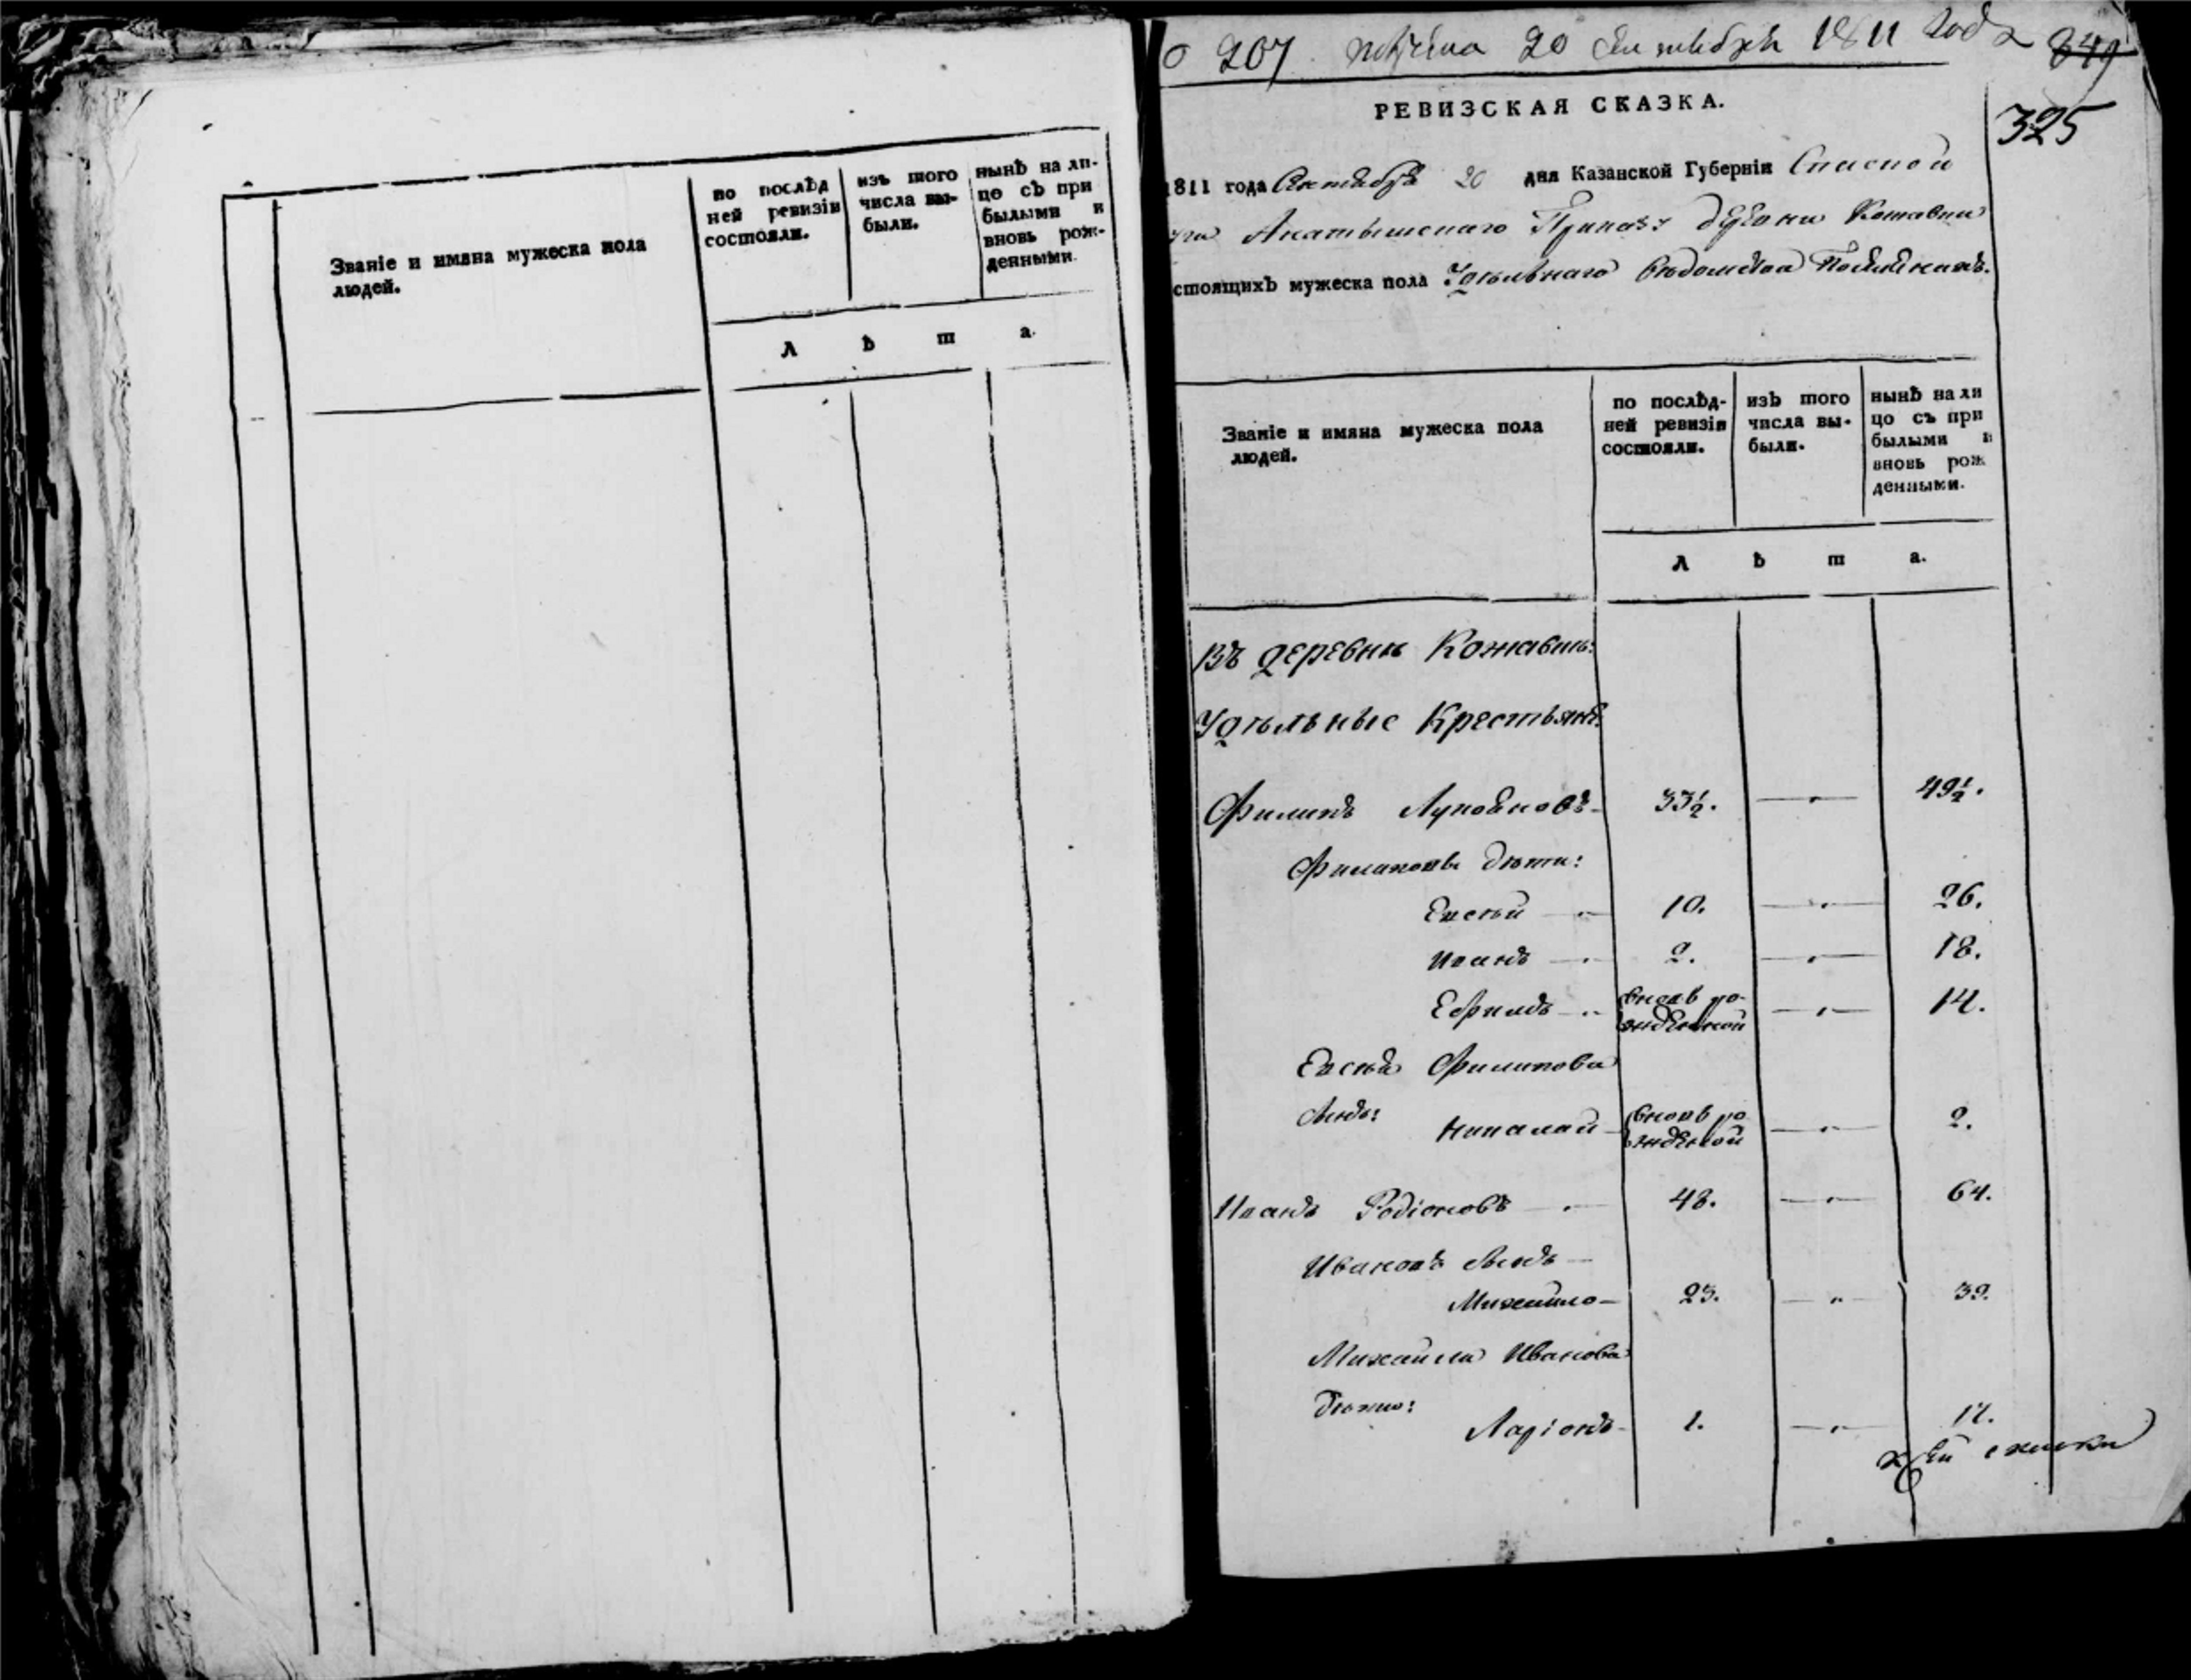 Званіе и имяна мужеска пола
людей.
по послѣд
ней ревизіи
состояли.
изъ того
числа вы-
были.
нынѣ на ли-
цо съ при
былыми и
вновь рож-
денными.
л ѣ т а.
207 20 1811 года 349
РЕВИЗСКАЯ СКАЗКА.
325
1811 года Октября 20 дня Казанской Губерніи Спаской
Приказа деревни
стоящихъ мужеска пола Удѣльнаго вѣдомства
Званіе и имяна мужеска пола
людей.
по послѣд-
ней ревизіи
состояли.
изъ того
числа вы-
были.
нынѣ на ли
цо съ при
былыми и
вновь рож
денными.
л ѣ т а.
Въ деревнѣ Кожавкѣ:
Удѣльные Крестьянѣ:
Филипъ Лукояновъ 33½. — 49½.
Филиповы дѣти:
Евсѣй — 10. — 26.
Иванъ — 2. — 18.
Ефимъ — вновь ро-
жденной — 14.
Евсѣя Филипова
сынъ: Николай вновь ро
жденной — 2.
Иванъ Родіоновъ — 48. — 64.
Ивановъ сынъ —
Михайло — 23. — 39.
Михайла Иванова
дѣти:
Ларіонъ — 1. — 17.